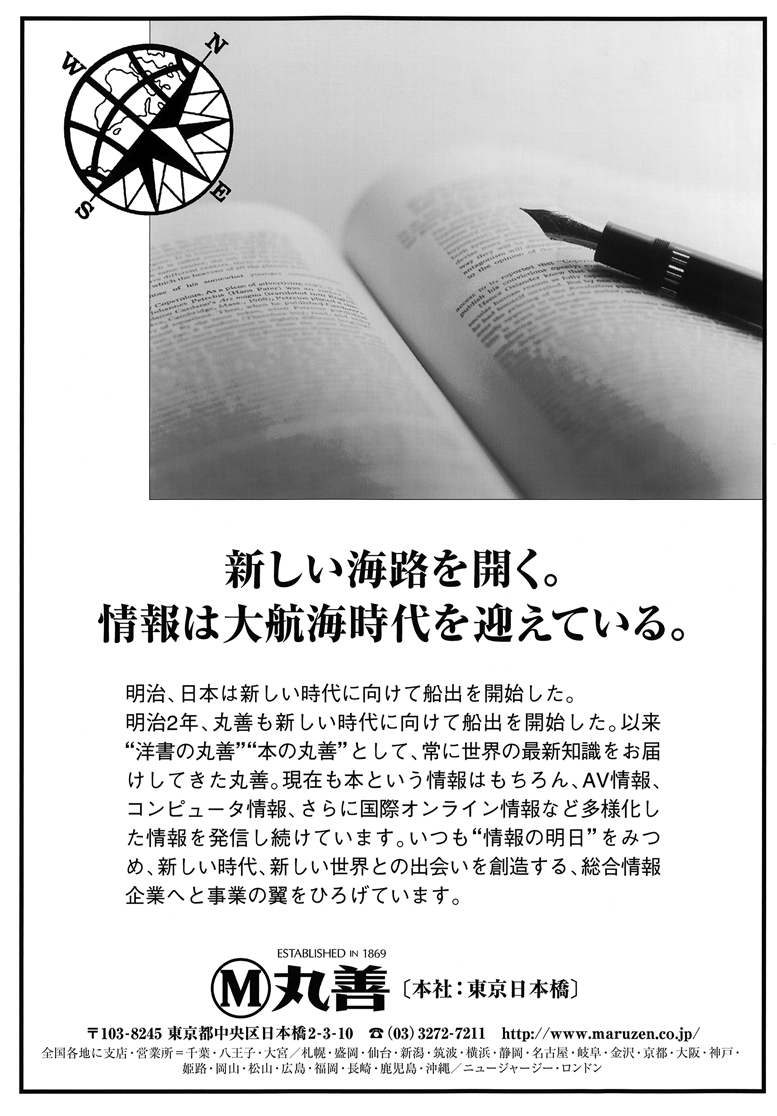 N
W
E
S
新しい海路を開く。
情報は大航海時代を迎えている。
明治、日本は新しい時代に向けて船出を開始した。
明治2年、丸善も新しい時代に向けて船出を開始した。以来
“洋書の丸善”“本の丸善”として、常に世界の最新知識をお届
けしてきた丸善。現在も本という情報はもちろん、AV情報、
コンピュータ情報、さらに国際オンライン情報など多様化し
た情報を発信し続けています。いつも“情報の明日”をみつ
め、新しい時代、新しい世界との出会いを創造する、総合情報
企業へと事業の翼をひろげています。
ESTABLISHED IN 1869
M丸善〔本社：東京日本橋〕
〒103-8245 東京都中央区日本橋2-3-10 ☎(03)3272-7211 http://www.maruzen.co.jp/
全国各地に支店・営業所＝千葉・八王子・大宮／札幌・盛岡・仙台・新潟・筑波・横浜・静岡・名古屋・岐阜・金沢・京都・大阪・神戸・
姫路・岡山・松山・広島・福岡・長崎・鹿児島・沖縄／ニュージャージー・ロンドン